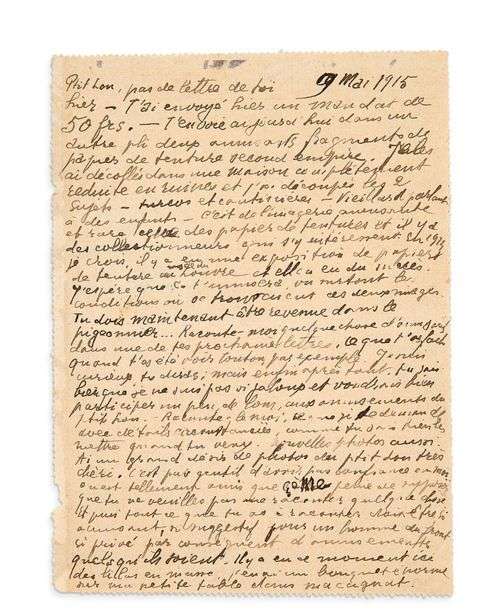 Ptit Lou, pas de lettre de toi 9 Mai 1915
hier — T'ai envoyé hier un mandat de
50 frs. — T'envoie aujourd'hui dans un
autre pli deux amusants fragments de
papier de tenture second empire. Je les
ai décollés dans une maison complètement
réduite en ruines et j'ai découpé les 2
sujets — turcos et cantinières — Vieillard parlant
à des enfants — c'est de l'imagerie amusante
et rare des papier de tentures et il y a
des collectionneurs qui s'y intéressent en
je crois, il y a eu une exposition de papiers
de tenture au Louvre et elle a eu du succès.
J'espère que ça t'amusera vu surtout les
conditions où se trouve ces deux images.
Tu dois maintenant être revenue dans le
pigeonnier... Raconte-moi quelque chose d'amusant
dans une de tes prochaines lettres, ce que t'as fait
quand t'as été voir toutou par exemple. Je suis
curieux tu diras, mais enfin après tout, tu sais
bien que je ne suis pas si jaloux et voudrais bien
participer un peu, de loin, aux amusements de
ptit Lou. Raconte-le moi,
avec détails circonstanciés comme tu sais bien les
mettre quand tu veux. nouvelles photos aussi.
Ai un grand désir de photos du ptit Lou très
chéri. C'est pas gentil d'avoir pas confiance en moi
on est tellement amis que ça me peine de
que tu ne veuilles pas me raconter quelque chose
et puis tout ce que tu as à raconter doit être si
amusant, si suggestif pour un homme du front
si privé par conséquent d'amusements
quels qu'ils soient. Il y a en ce moment ici
des lilas en masse, j'en ai un bouquet énorme
sur ma petite table dans ma cagnat.